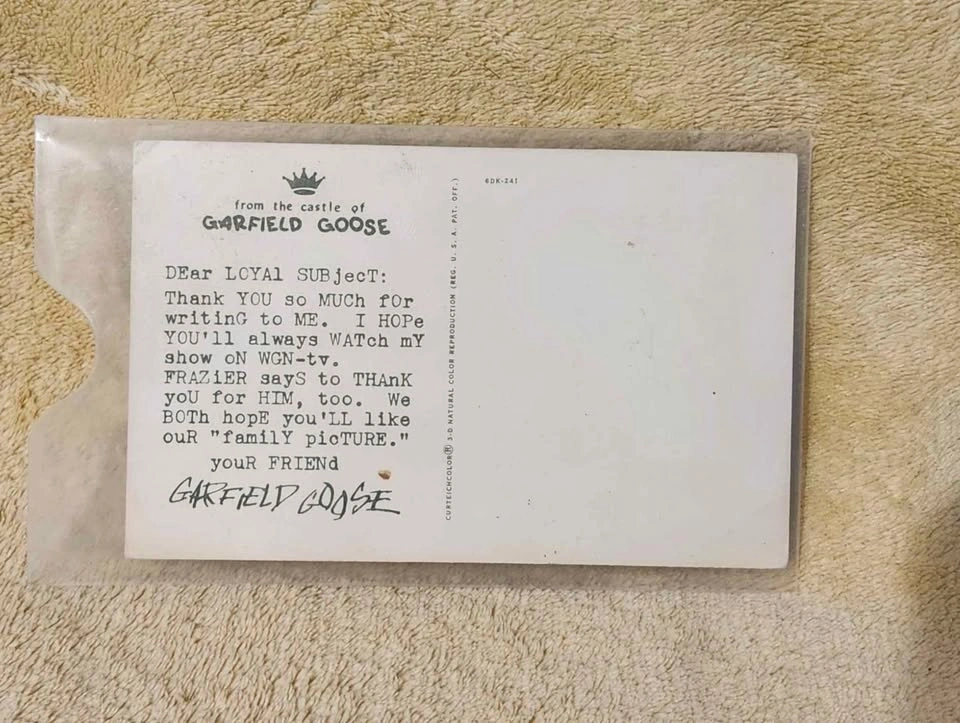 from the castle of
GARFIELD GOOSE
DEar LOYAl SUBjecT:
Thank YOU so MUCh fOr
writinG to ME. I HOPe
YOU'll always WATch mY
show oN WGN-tv.
FRAZiER sayS to THAnK
yoU for HIM, too. We
BOTh hopE you'LL like
ouR "familY picTURE."
youR FRIENd
GARFIELD GOOSE
CURTEICHCOLOR® 3-D NATURAL COLOR REPRODUCTION (REG. U. S. A. PAT. OFF.)
6DK-241